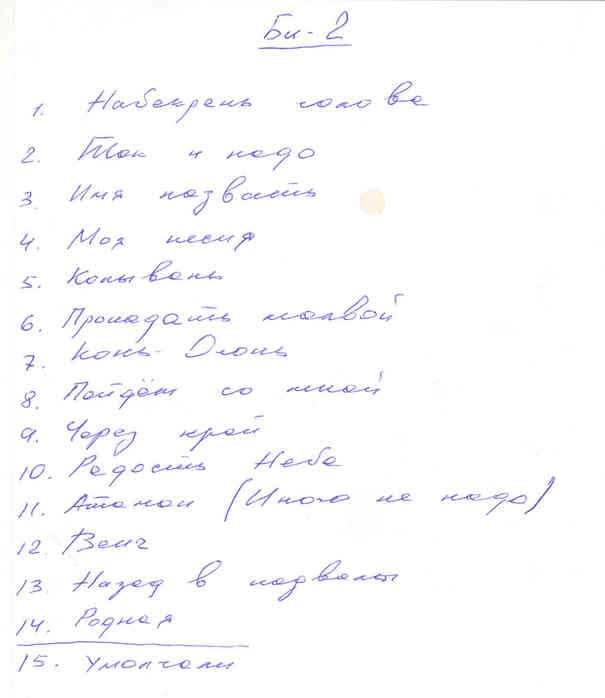 Би-2
1. Набекрень голова
2. Так и надо
3. Имя назвать
4. Моя песня
5. Колывань
6. Пропадать молвой
7. Конь-Огонь
8. Пойдём со мной
9. Через край
10. Радость Неба
11. Атаман (Иного не надо)
12. Венч
13. Назад в подвалы
14. Родная
15. Умолчали